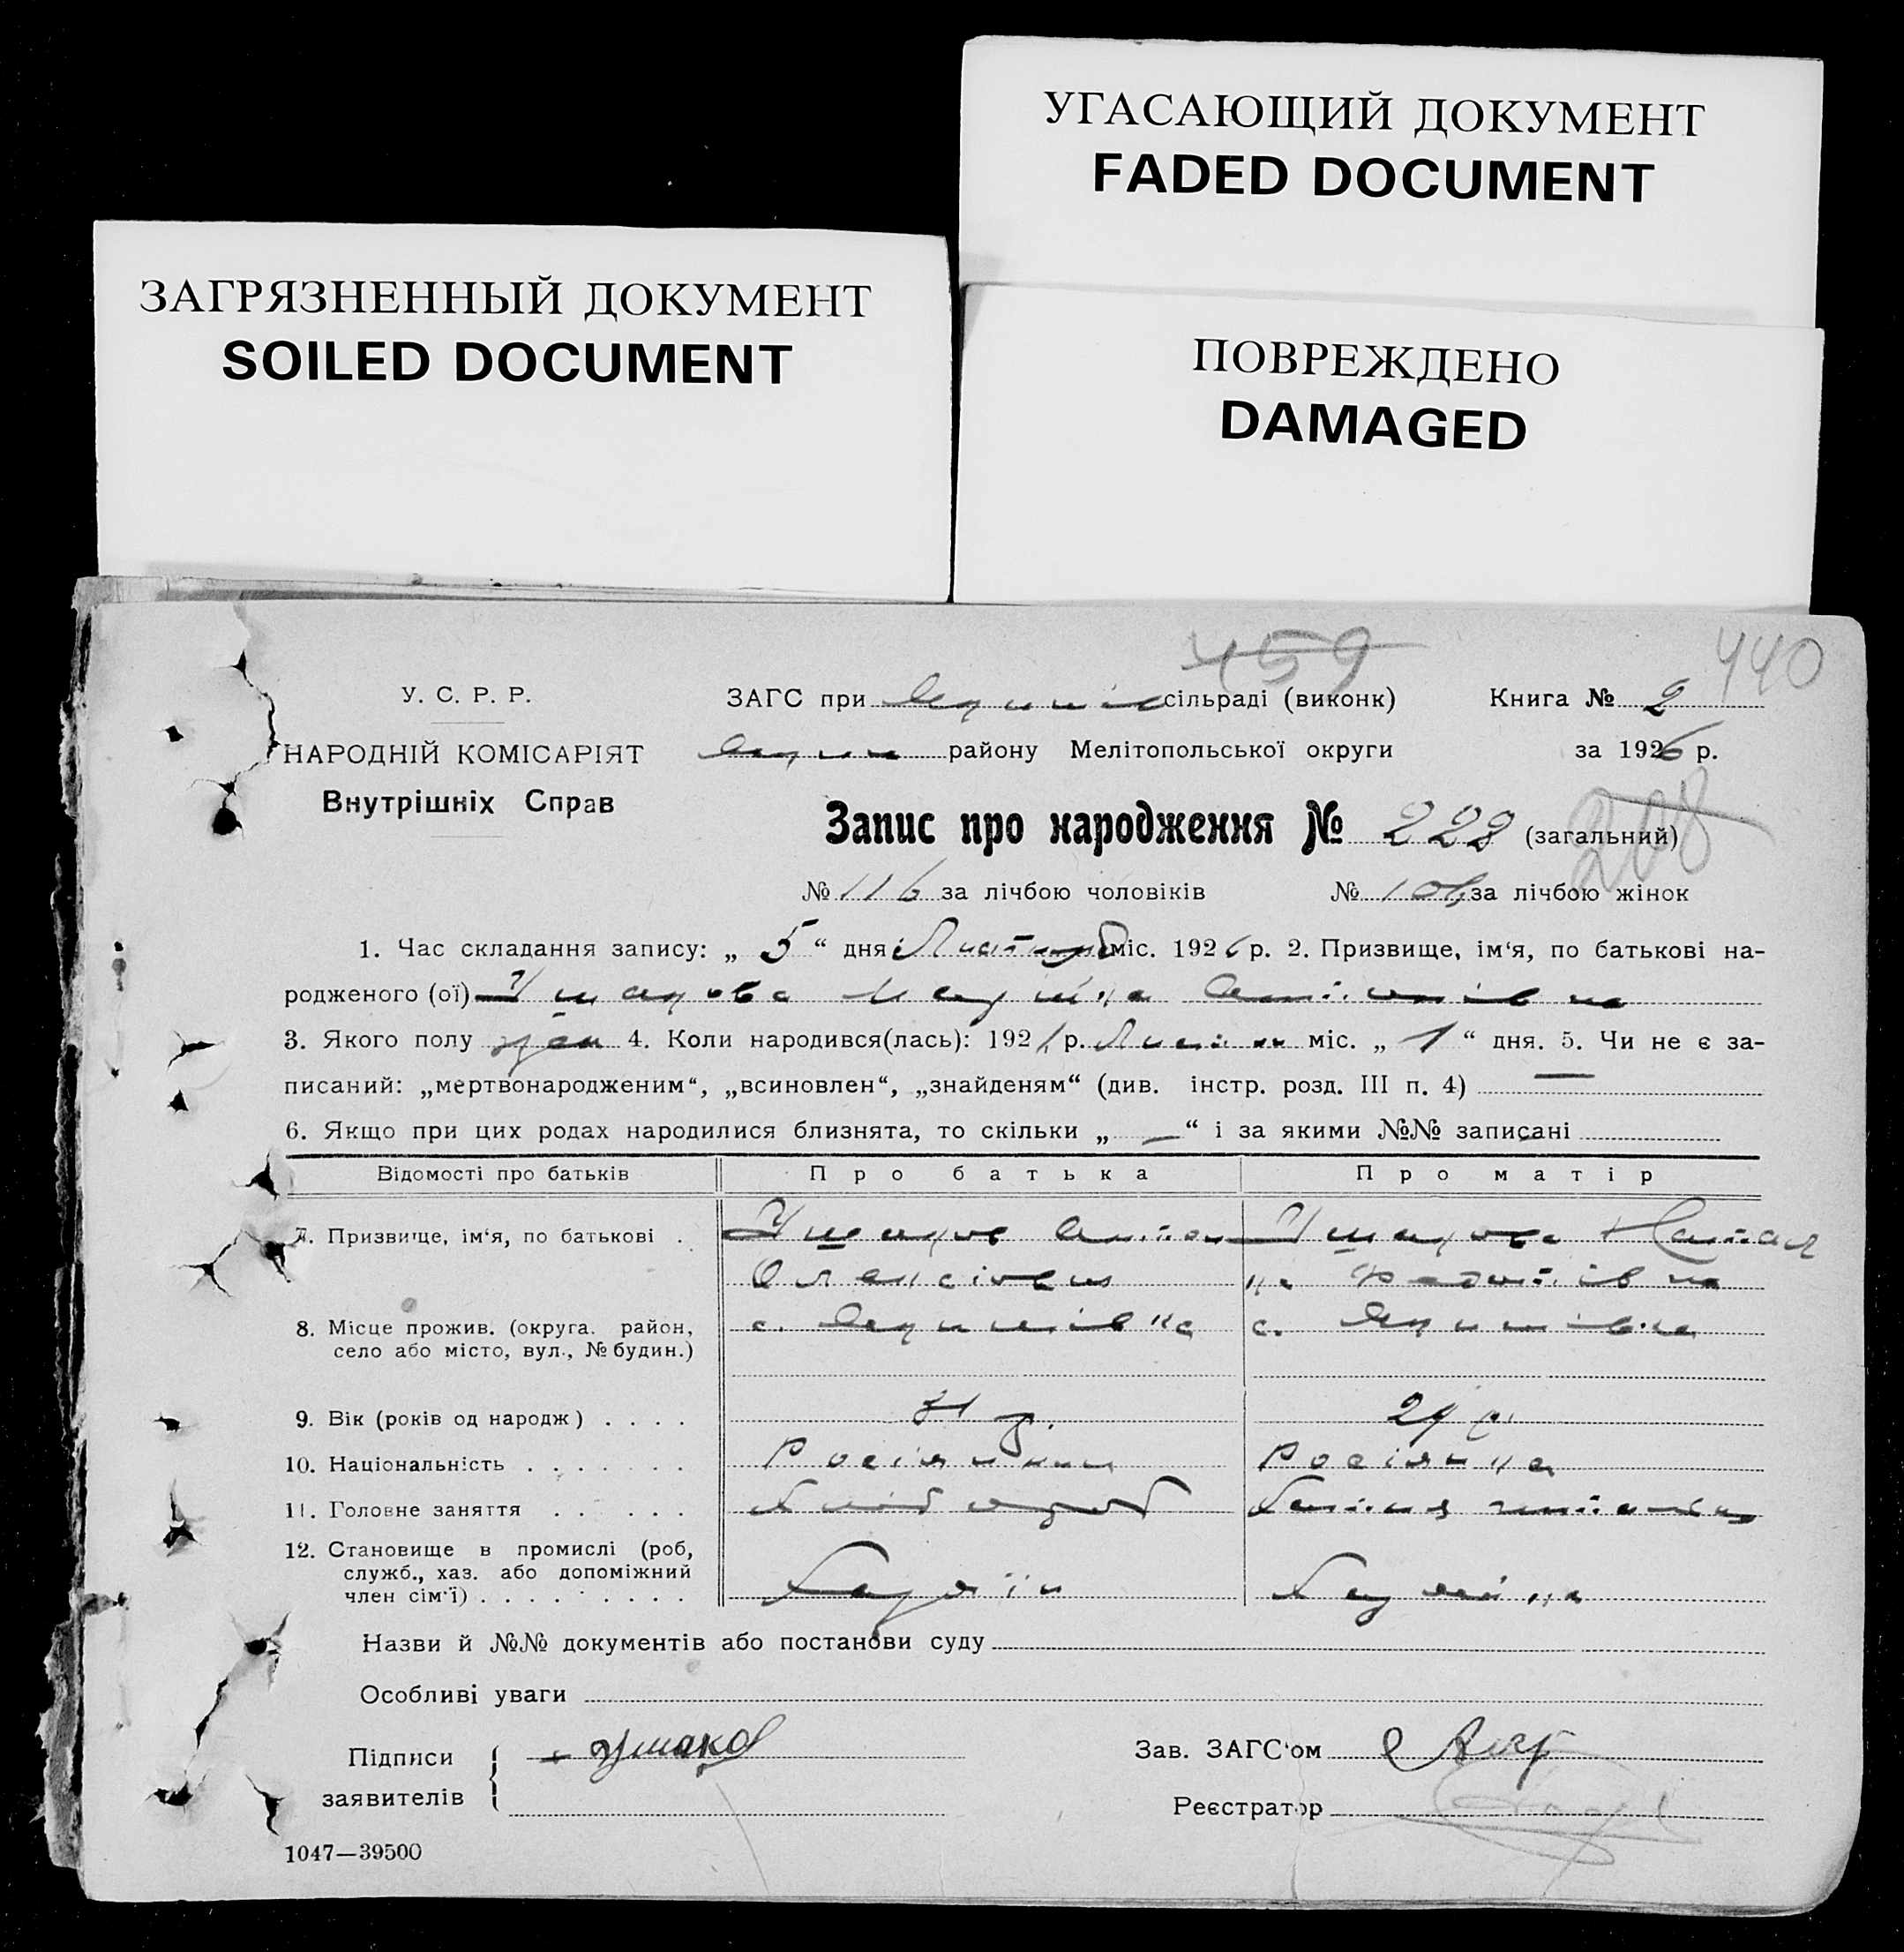 УГАСАЮЩИЙ ДОКУМЕНТ
FADED DOCUMENT
ЗАГРЯЗНЕННЫЙ ДОКУМЕНТ
SOILED DOCUMENT
ПОВРЕЖДЕНО
DAMAGED
459
440
У. С. Р. Р.
ЗАГС при сільраді (виконк) Книга № 2
НАРОДНІЙ КОМІСАРІЯТ
району Мелітопольської округи за 1926 р.
Внутрішніх Справ
Запис про народження № 222 (загальний)
208
№ 116 за лічбою чоловіків № за лічбою жінок
1. Час складання запису: „ 5 “ дня міс. 1926 р. 2. Призвище, ім‘я, по батькові на-
родженого (ої) Ушакова
3. Якого полу жін 4. Коли народився(лась): 192 р. міс. „ 1 “ дня. 5. Чи не є за-
писаний: „мертвонародженим“, „всиновлен“, „знайденям“ (див. інстр. розд. III п. 4) —
6. Якщо при цих родах народилися близнята, то скільки „ — “ і за якими №№ записані
Відомості про батьків Про батька Про матір
7. Призвище, ім‘я, по батькові . Ушаков Антон Ушакова Наталя
Олексієвич
8. Місце прожив. (округа. район, с. с.
село або місто, вул., № будин.)
9. Вік (років од народж) . . . . 31 р. 29 р.
10. Національність . . . . . . . Росіянин Росіянка
11. Головне заняття . . . . . . Хлібороб Хатня
12. Становище в промислі (роб,
служб., хаз. або допоміжний
член сім‘ї) . . . . . . . . . Хазяїн Хазяйка
Назви й №№ документів або постанови суду
Особливі уваги
Підписи Ушаков Зав. ЗАГС‘ом
заявителів Реєстратор
1047—39500